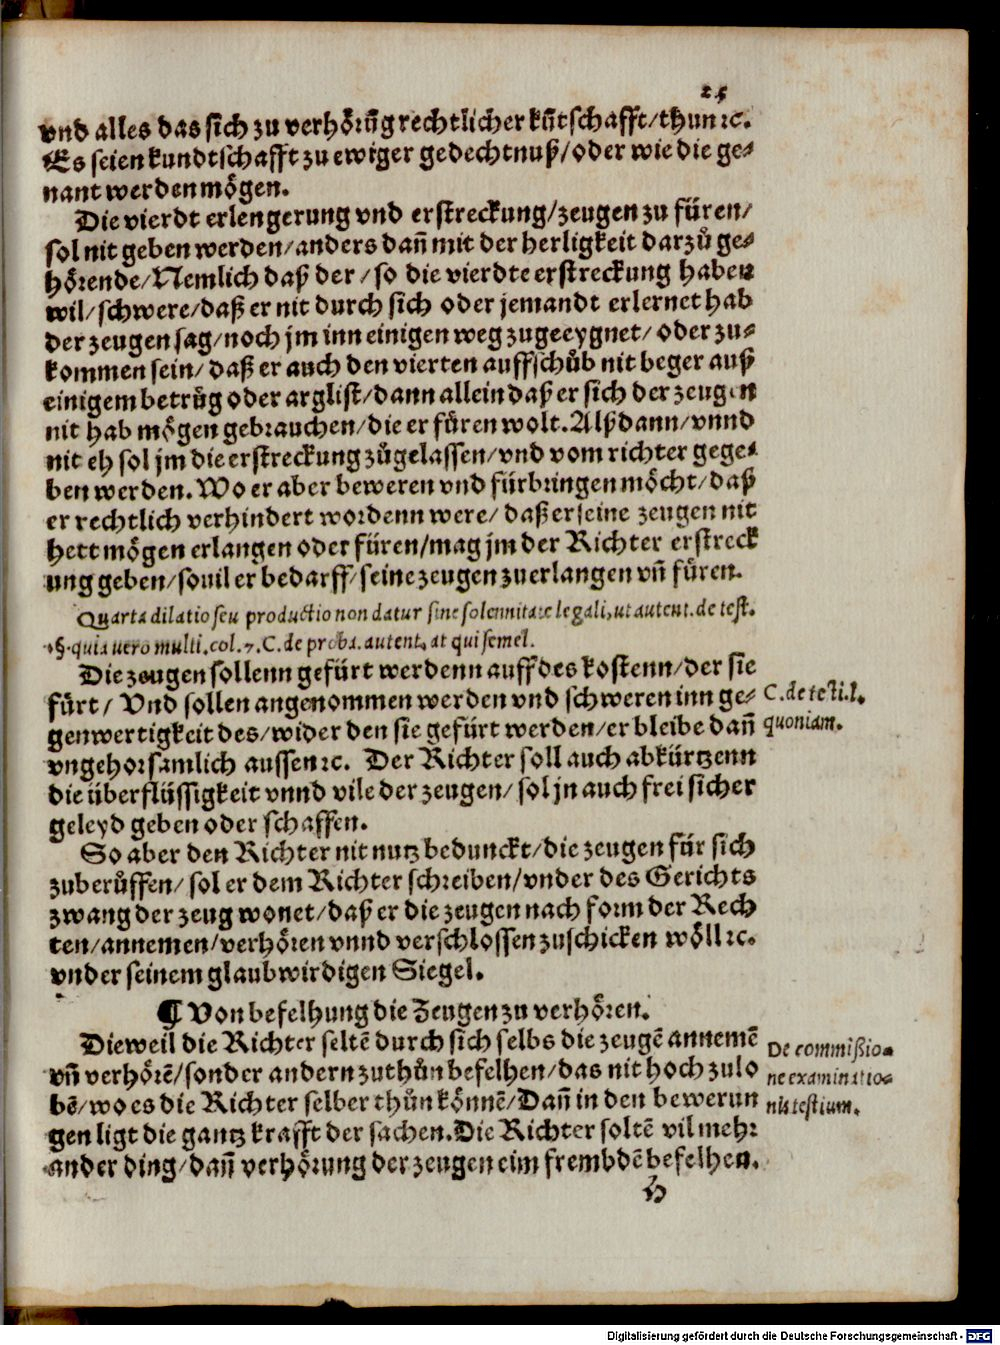 25
vnd alles das sich zu verhörũg rechtlicher kũtschafft/thun ꝛc.
Es seien kundtschafft zu ewiger gedechtnuß/oder wie die ge⸗
nant werden mögen.
Die vierdt erlengerung vnd erstreckung/zeugen zu füren/
sol nit geben werden/anders dañ mit der herligkeit darzů ge⸗
hörende/Nemlich daß der/so die vierdte erstreckung haben
wil/schwere/daß er nit durch sich oder jemandt erlernet hab
der zeugen sag/noch jm inn einigen weg zugeeygnet/oder zu⸗
kommen sein/daß er auch den vierten auffschůb nit beger auß
einigem betrůg oder arglist/dann allein daß er sich der zeugen
nit hab mögen gebrauchen/die er füren wolt. Alßdann/vnnd
nit eh sol jm die erstreckung zůgelassen/vnd vom richter gege⸗
ben werden. Wo er aber beweren vnd fürbringen möcht/daß
er rechtlich verhindert wordenn were/daß er seine zeugen nit
hett mögen erlangen oder füren/mag jm der Richter erstreck
ung geben/souil er bedarff/seine zeugen zuerlangen vñ füren.
Quarta dilatio seu productio non datur sine solennitate legali, ut autent. de test.
§. quia uero multi. col. 7. C. de proba. autent. at qui semel.
Die zeugen sollenn gefürt werdenn auff des kostenn/der sie
fürt/ Vnd sollen angenommen werden vnd schweren inn ge⸗
genwertigkeit des/wider den sie gefürt werden/er bleibe dañ
vngehorsamlich aussen ꝛc. Der Richter soll auch abkürtzenn
die überflüssigkeit vnnd vile der zeugen/sol jn auch frei sicher
geleyd geben oder schaffen.
C. de testi. l.
quoniam.
So aber den Richter nit nutz bedunckt/die zeugen für sich
zuberůffen/sol er dem Richter schreiben/vnder des Gerichts
zwang der zeug wonet/daß er die zeugen nach form der Rech
ten/annemen/verhören vnnd verschlossen zuschicken wöll ꝛc.
vnder seinem glaubwirdigen Siegel.
¶ Von befelhung die Zeugen zu verhören.
Dieweil die Richter seltẽ durch sich selbs die zeugẽ annemẽ
vñ verhörẽ/sonder andern zuthůn befelhen/das nit hoch zulo
bẽ/wo es die Richter selber thůn könnẽ/Dañ in den bewerun
gen ligt die gantz krafft der sachen. Die Richter soltẽ vil mehr
ander ding/dañ verhörung der zeugen eim frembdẽ befelhen.
De commißio⸗
ne examinatio⸗
nis testium.
H
Digitalisierung gefördert durch die Deutsche Forschungsgemeinschaft - DFG